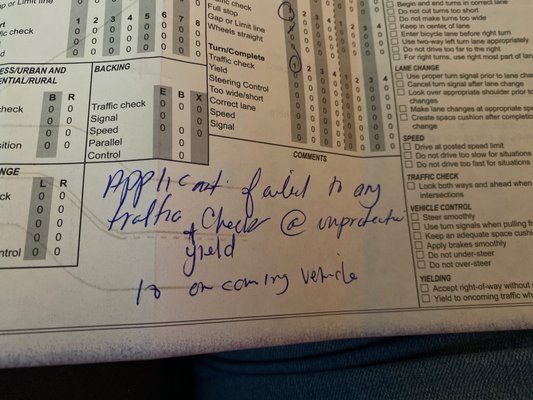 or Limit line
1 2 3 4 5 6 7 8
Full stop
Gap or Limit line
Wheels straight
Turn/Complete
Traffic check
Yield
Steering Control
Too wide/short
Correct lane
Speed
Signal
ESS/URBAN AND
DENTIAL/RURAL
B R
check
sition
BACKING
E B X
Traffic check
Signal
Speed
Parallel
Control
NGE
L R
ck
ontrol
COMMENTS
Applicant failed to any
traffic check @
& yield
to oncoming vehicle
Begin and end turns in correct lane
Do not cut turns too short
Do not make turns too wide
Keep in center of lane
Enter bicycle lane before right turn
Use two-way left turn lane appropriately
Do not drive too far to the right
For right turns, use right most part of lan
LANE CHANGE
Use proper turn signal prior to lane chan
Cancel turn signal after lane change
Look over appropriate shoulder prior to
changes
Make lane changes at appropriate spe
Create space cushion after completion
change
SPEED
Drive at posted speed limit
Do not drive too slow for situations
Do not drive too fast for situations
TRAFFIC CHECK
Look both ways and ahead when
intersections
VEHICLE CONTROL
Steer smoothly
Use turn signals when pulling fr
Keep an adequate space cushi
Apply brakes smoothly
Do not under-steer
Do not over-steer
YIELDING
Accept right-of-way without
Yield to oncoming traffic wh